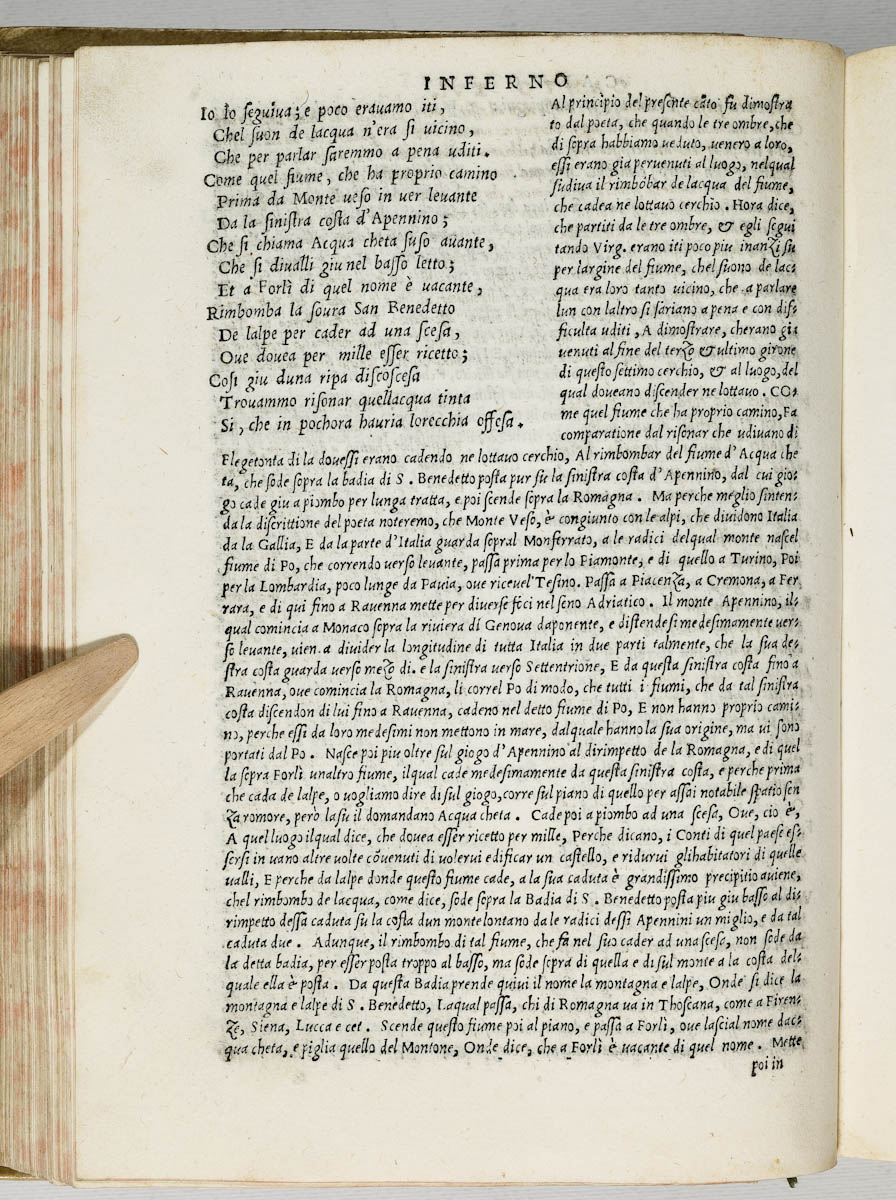 INFERNO
Io lo seguiua; e poco erauamo iti,
Chel suon de lacqua n'era si uicino,
Che per parlar saremmo a pena uditi.
Come quel fiume, che ha proprio camino
Prima da Monte ueso in uer leuante
Da la sinistra costa d'Apennino;
Che si chiama Acqua cheta suso auante,
Che si diualli giu nel basso letto;
Et a Forlì di quel nome è uacante,
Rimbomba la soura San Benedetto
De lalpe per cader ad una scesa,
Oue douea per mille esser ricetto;
Cosi giu duna ripa discoscesa
Trouammo risonar quellacqua tinta
Si, che in pochora hauria lorecchia offesa.
Al principio del presente cāto fu dimostra
to dal poeta, che quando le tre ombre, che
di sopra habbiamo ueduto, uenero a loro,
essi erano gia peruenuti al luogo, nelqual
sudiua il rimbōbar de lacqua del fiume,
che cadea ne lottauo cerchio. Hora dice,
che partiti da le tre ombre, & egli segui
tando Virg. erano iti poco piu inanzi su
per largine del fiume, chel suono de lac-
qua era loro tanto uicino, che a parlare
lun con laltro si sariano a pena e con dif-
ficulta uditi, A dimostrare, cherano gia
uenuti al fine del terzo & ultimo girone
di questo settimo cerchio, & al luogo, del
qual doueano discender ne lottauo. CO-
me quel fiume che ha proprio camino, Fa
comparatione dal risonar che udiuano di
Flegetonta di la douessi erano cadendo ne lottauo cerchio, Al rimbombar del fiume d'Acqua che
ta, che sode sopra la badia di S. Benedetto posta pur su la sinistra costa d'Apennino, dal cui gio-
go cade giu a piombo per lunga tratta, e poi scende sopra la Romagna. Ma perche meglio sinten-
da la discrittione del poeta noteremo, che Monte Veso, è congiunto con le alpi, che diuidono Italia
da la Gallia, E da la parte d'Italia guarda sopral Monferrato, a le radici delqual monte nascel
fiume di Po, che correndo uerso leuante, passa prima per lo Piamonte, e di quello a Turino, Poi
per la Lombardia, poco lunge da Pauia, oue riceuel'Tesino. Passa a Piacenza, a Cremona, a Fer
rara, e di qui fino a Rauenna mette per diuerse foci nel seno Adriatico. Il monte Apennino, il-
qual comincia a Monaco sopra la riuiera di Genoua daponente, e distendesi medesimamente uer-
so leuante, uien a diuider la longitudine di tutta Italia in due parti talmente, che la sua de-
stra costa guarda uerso mezo di. e la sinistra uerso Settentrione, E da questa sinistra costa fino a
Rauenna, oue comincia la Romagna, li correl Po di modo, che tutti i fiumi, che da tal sinistra
costa discendon di lui fino a Rauenna, cadeno nel detto fiume di Po, E non hanno proprio cami-
no, perche essi da loro medesimi non mettono in mare, dalquale hanno la sua origine, ma ui sono
portati dal Po. Nasce poi piu oltre sul giogo d'Apennino al dirimpetto de la Romagna, e di quel
la sopra Forlì unaltro fiume, ilqual cade medesimamente da questa sinistra costa, e perche prima
che cada de lalpe, o uogliamo dire di sul giogo, corre sul piano di quello per assai notabile spatio sen
za romore, però lasu il domandano Acqua cheta. Cade poi a piombo ad una scesa, Oue, cio è,
A quel luogo ilqual dice, che douea esser ricetto per mille, Perche dicano, i Conti di quel paese es-
sersi in uano altre uolte cōuenuti di uolerui edificar un castello, e ridurui glihabitatori di quelle
ualli, E perche da lalpe donde questo fiume cade, a la sua caduta è grandissimo precipitio auiene,
chel rimbombo de lacqua, come dice, sode sopra la Badia di S. Benedetto posta piu giu basso al di-
rimpetto dessa caduta su la costa dun monte lontano da le radici dessi Apennini un miglio, e da tal
caduta due. Adunque, il rimbombo di tal fiume, che fa nel suo cader ad una scesa, non sode da
la detta badia, per esser posta troppo al basso, ma sode sopra di quella e di sul monte a la costa del-
quale ella è posta. Da questa Badia prende quiui il nome la montagna e lalpe, Onde si dice la
montagna e lalpe di S. Benedetto, Laqual passa, chi di Romagna ua in Thoscana, come a Firen-
ze, Siena, Lucca e cet. Scende questo fiume poi al piano, e passa a Forlì, oue lascial nome dac-
qua cheta, e piglia quello del Montone, Onde dice, che a Forlì è uacante di quel nome. Mette
poi in